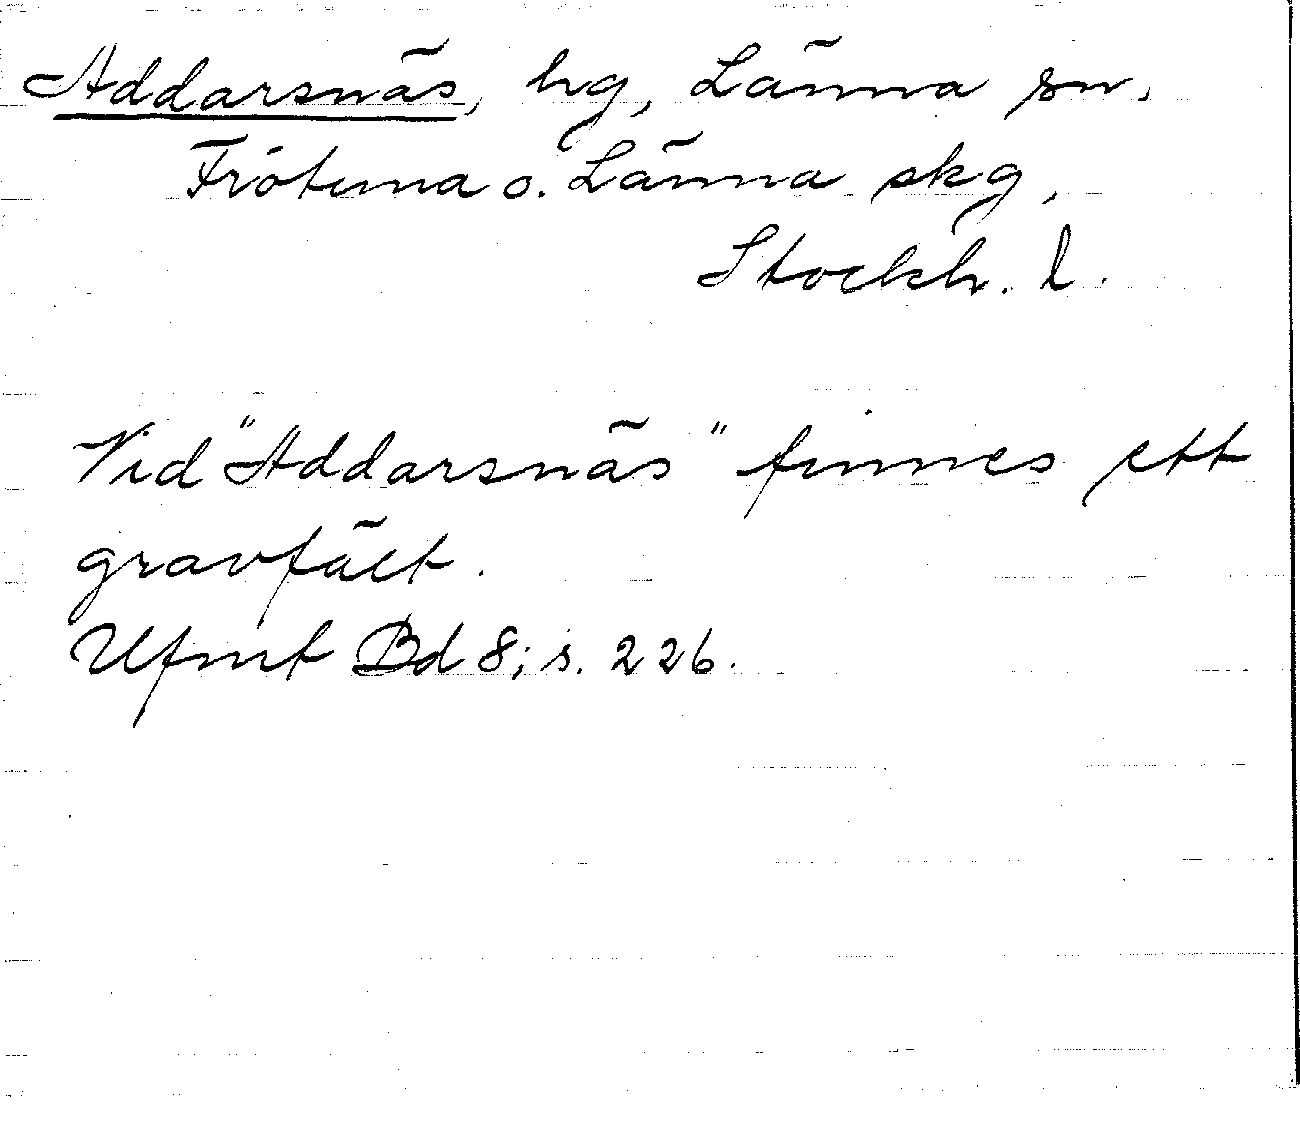 Addarsnäs, hg, Länna sn,
Frötuna o. Länna skg,
Stockh. l.
Vid "Addarsnäs" finnes ett
gravfält.
Ufmt Bd 8; s. 226.